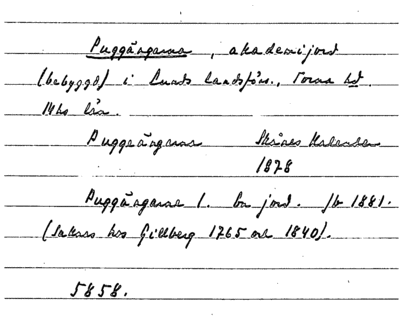 Puggängarna, akademijord
(bebyggd) i Lunds landsförs., Torna hd.
Mhs län.
Puggeängarna Skånes Kalender
1878
Puggängarne 1. bn jord. Jb 1881.
(Saknas hos Gillberg 1765 och 1840).
5858.